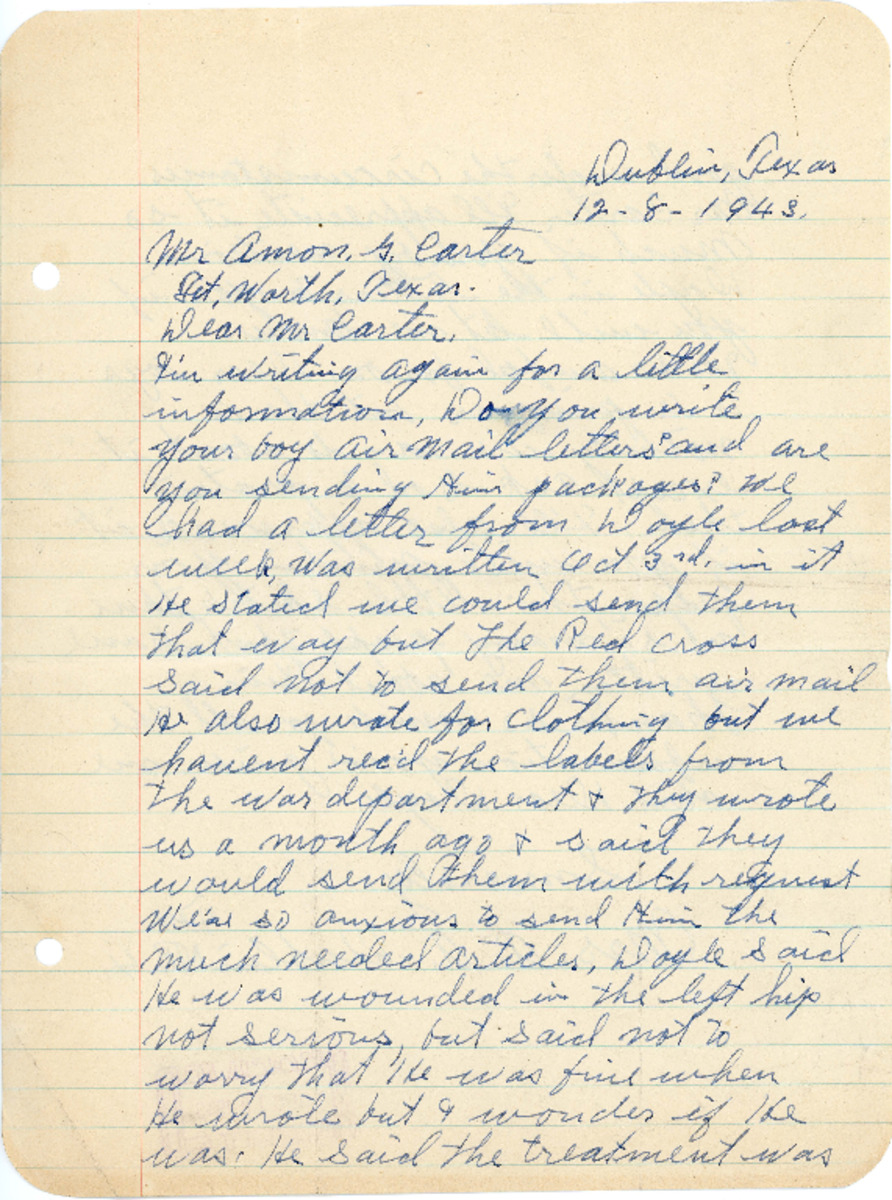 Dublin, Texas
12-8-1943.
Mr Amon. G. Carter
Ft, Worth, Texas.
Dear Mr Carter,
I'm writing again for a little
information, Do you write
your boy air mail letters and are
you sending Him packages? We
had a letter from Doyle last
week, was written Oct 3rd. in it
He stated we could send them
that way but the Red Cross
said not to send them air mail
He also wrote for clothing but we
havent rec'd the labels from
the war department & they wrote
us a month ago & said they
would send them with request
We're so anxious to send Him the
much needed articles, Doyle said
He was wounded in the left hip
not serious, but said not to
worry that He was fine when
He wrote but I wonder if He
was. He said the treatment was